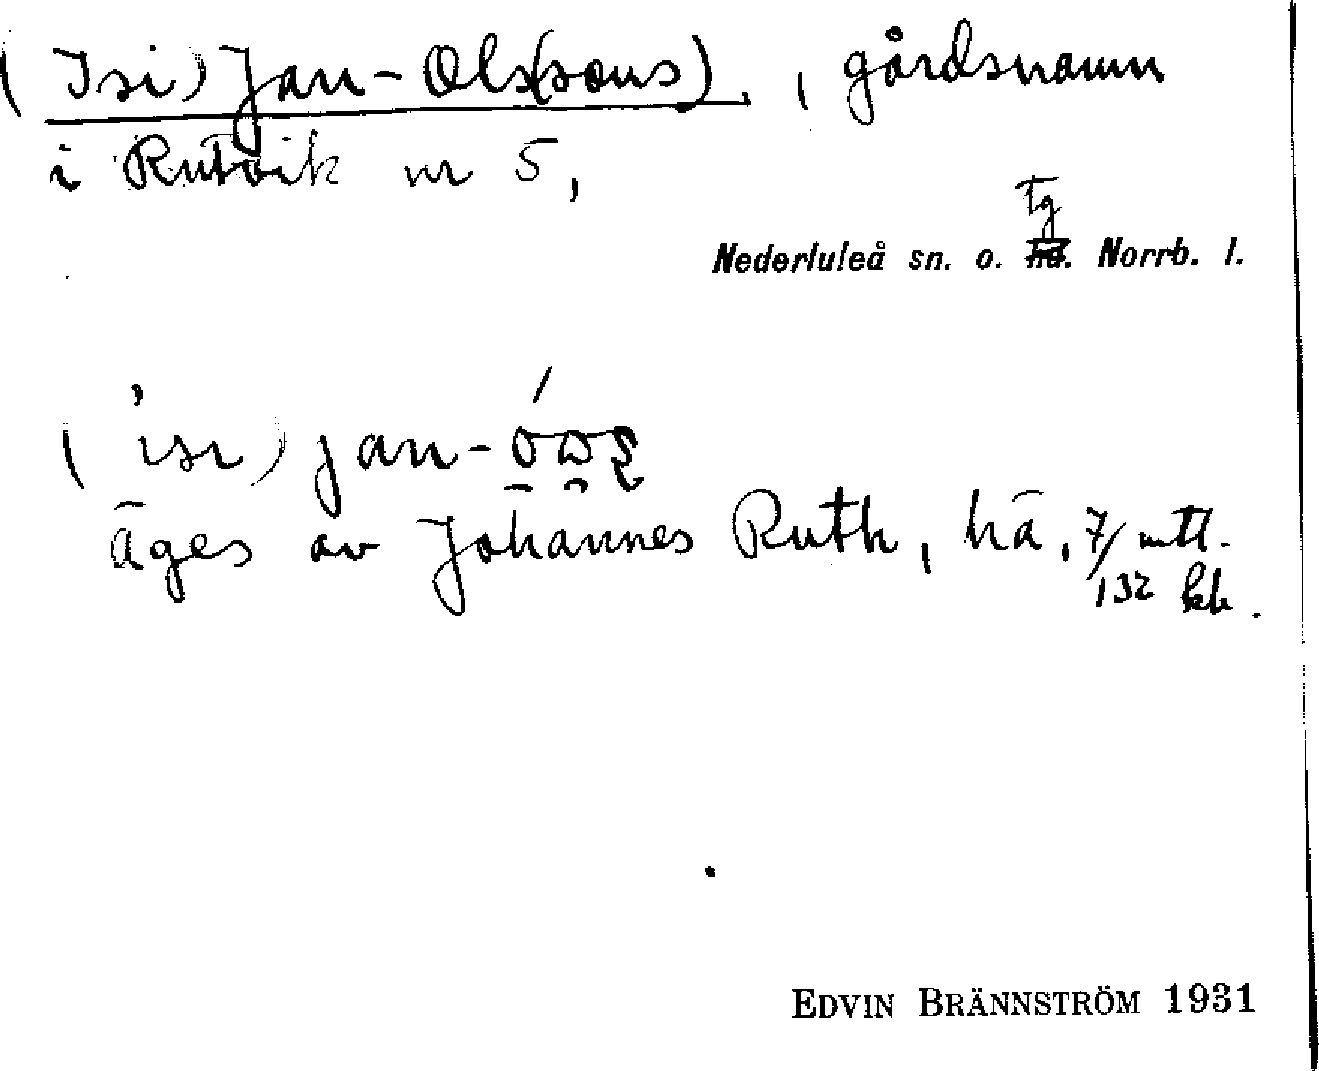 (Isi) Jan-Ols(sons)., gårdsnamn
i Rutvik nr 5,
Tg
Nederluleå sn. o. hd. Norrb. l.
(ˈisi) jan-
äges av Johannes Ruth, hä, 7/132 mtl. kh.
EDVIN BRÄNNSTRÖM 1931